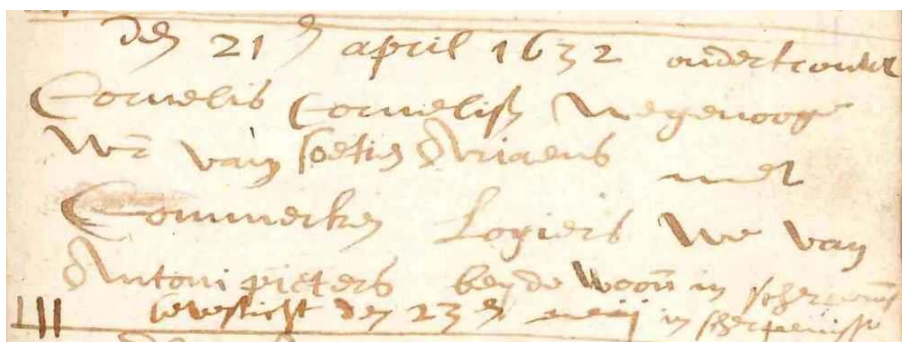 den 21 en april 1632 ondertrouwt
Cornelis Cornelisz Wegenooge
Wr van soetien Ariaens
met
Commerken Logiers We van
Antoni pieters beyde woon in scherpenis
bevesticht den 23 en meij in scherpenisse